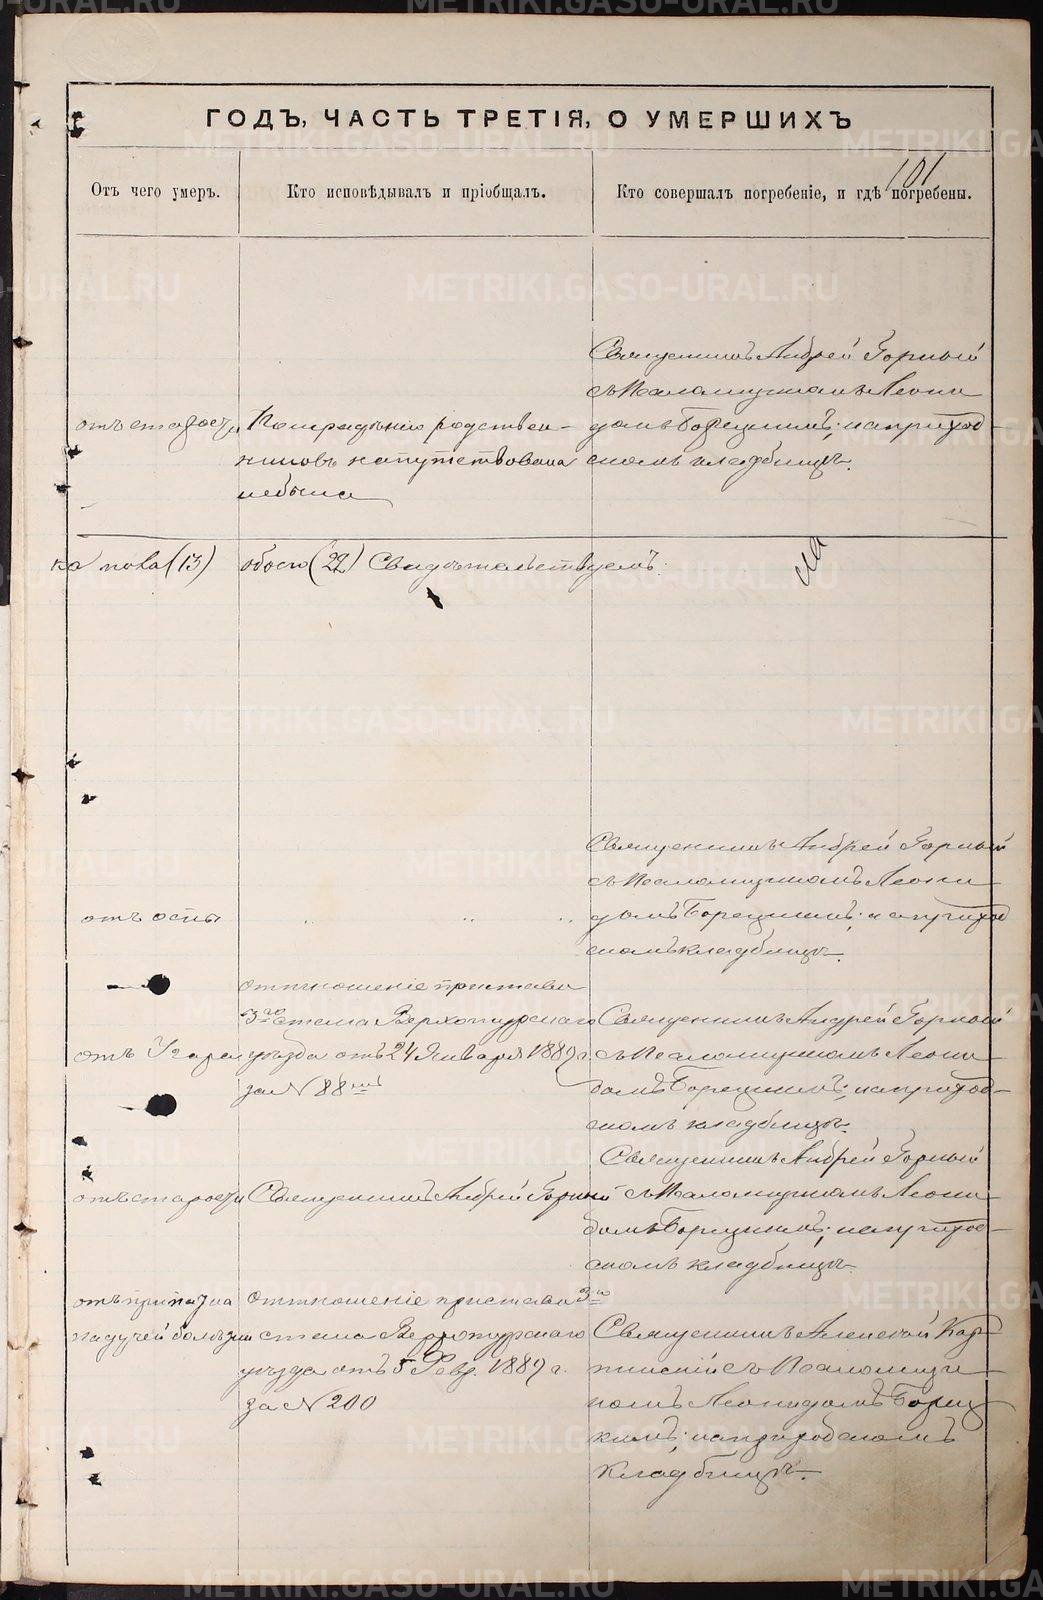 ГОДЪ, ЧАСТЬ ТРЕТІЯ, О УМЕРШИХЪ
101
Отъ чего умеръ.
Кто исповѣдывалъ и пріобщалъ.
Кто совершалъ погребеніе, и гдѣ погребены.
отъ старости
По нерадѣнію родствен-
никовъ напутствована
небыла
Священникъ Андрей Горный
съ Псаломщикомъ Леони
домъ Борецкимъ; на приход-
скомъ кладбищѣ.
(13) обоего (22) Свидѣтельствуемъ:
отъ оспы
" " "
Священникъ Андрей Горный
съ Псаломщикомъ Леони
домъ Борецкимъ; на приход
скомъ кладбищѣ.
отъ Угара
отношеніе пристава
3го стана Верхотурскаго
уѣзда отъ 24 Января 1889 г.
за № 88мъ
Священникъ Андрей Горный
съ Псаломщикомъ Леони
домъ Борецкимъ; на приход-
скомъ кладбищѣ.
отъ старости
Священникъ Андрей Горный
Священникъ Андрей Горный
съ Псаломщикомъ Леони
домъ Борецкимъ; на приход-
скомъ кладбищѣ.
отъ припадка
падучей болѣзни
отношеніе пристава 3го
стана Верхотурскаго
уѣзда отъ 5 Февр. 1889 г.
за № 200
Священникъ Алексѣй
съ Псаломщи
комъ Леонидомъ Борец
кимъ; на приходскомъ
кладбищѣ.
METRIKI.GASO-URAL.RU